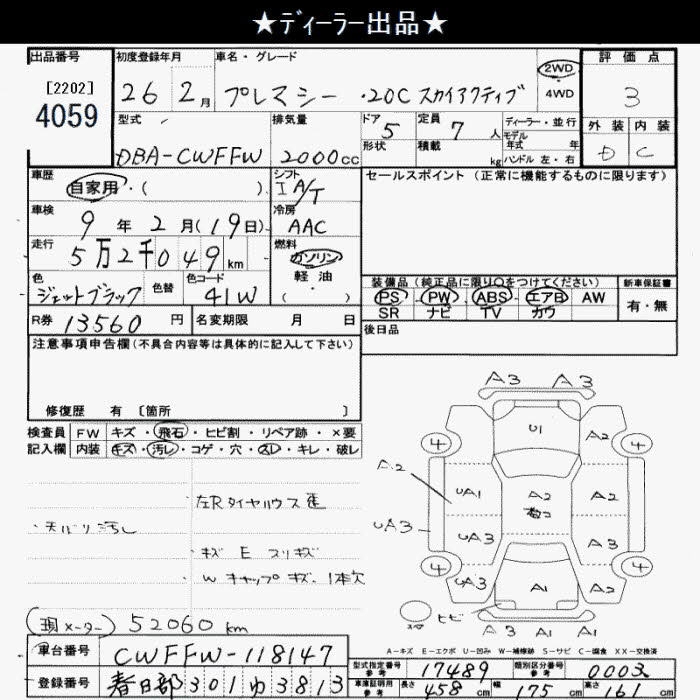 ★ディーラー出品★
出品番号
[2202]
4059
初度登録年月
26 2月
車名・グレード
プレマシー ・20C スカイアクティブ
2WD
4WD
評価点
3
型式
DBA-CWFFW
排気量
2000cc
ドア
5
形状
定員
7人
積載
kg
ディーラー・並行
モデル
年式 年
ハンドル 左・右
外装 内装
D C
車歴
自家用・( )
シフト
IA/T
車検
9年2月(19日)
冷房
AAC
走行
5万2千049km
燃料
ガソリン
軽油
( ・ )
色
ジェットブラック
色替
色コード
41W
セールスポイント(正常に機能するものに限ります)
装備品(純正品に限り○をつけてください)
PS・PW・ABS・エアB・AW
SR ナビ TV カワ
新車保証書
有・無
R券 13560円
名変期限 月 日
後日品
注意事項申告欄(不具合内容等は具体的に記入して下さい)
修復歴 有 〔箇所 〕
検査員
記入欄
FW キズ・飛石・ヒビ割・リペア跡・×要
内装 キズ・汚レ・コゲ・穴・スレ・キレ・破レ
左Rタイヤハウス
・天バリ汚レ
・キズ E スリキズ
W キャップキズ、1本欠
(現メーター) 52060km
A3 A3
U1
4 A2 4
A2
UA1 A2 A2
UA3
UA3 A3
4 UA3 A1 A2 4
ヒビ
A3 A1 A1
A-キズ E-エクボ U-凹み W-補修跡 S-サビ C-腐食 XX-交換済
車台番号
CWFFW-118147
登録番号
春日部301ゆ3813
型式指定番号
参考
17489
類別区分番号
参考
0003
車庫証明用
参考
長さ 458cm 幅 175cm 高さ 161cm